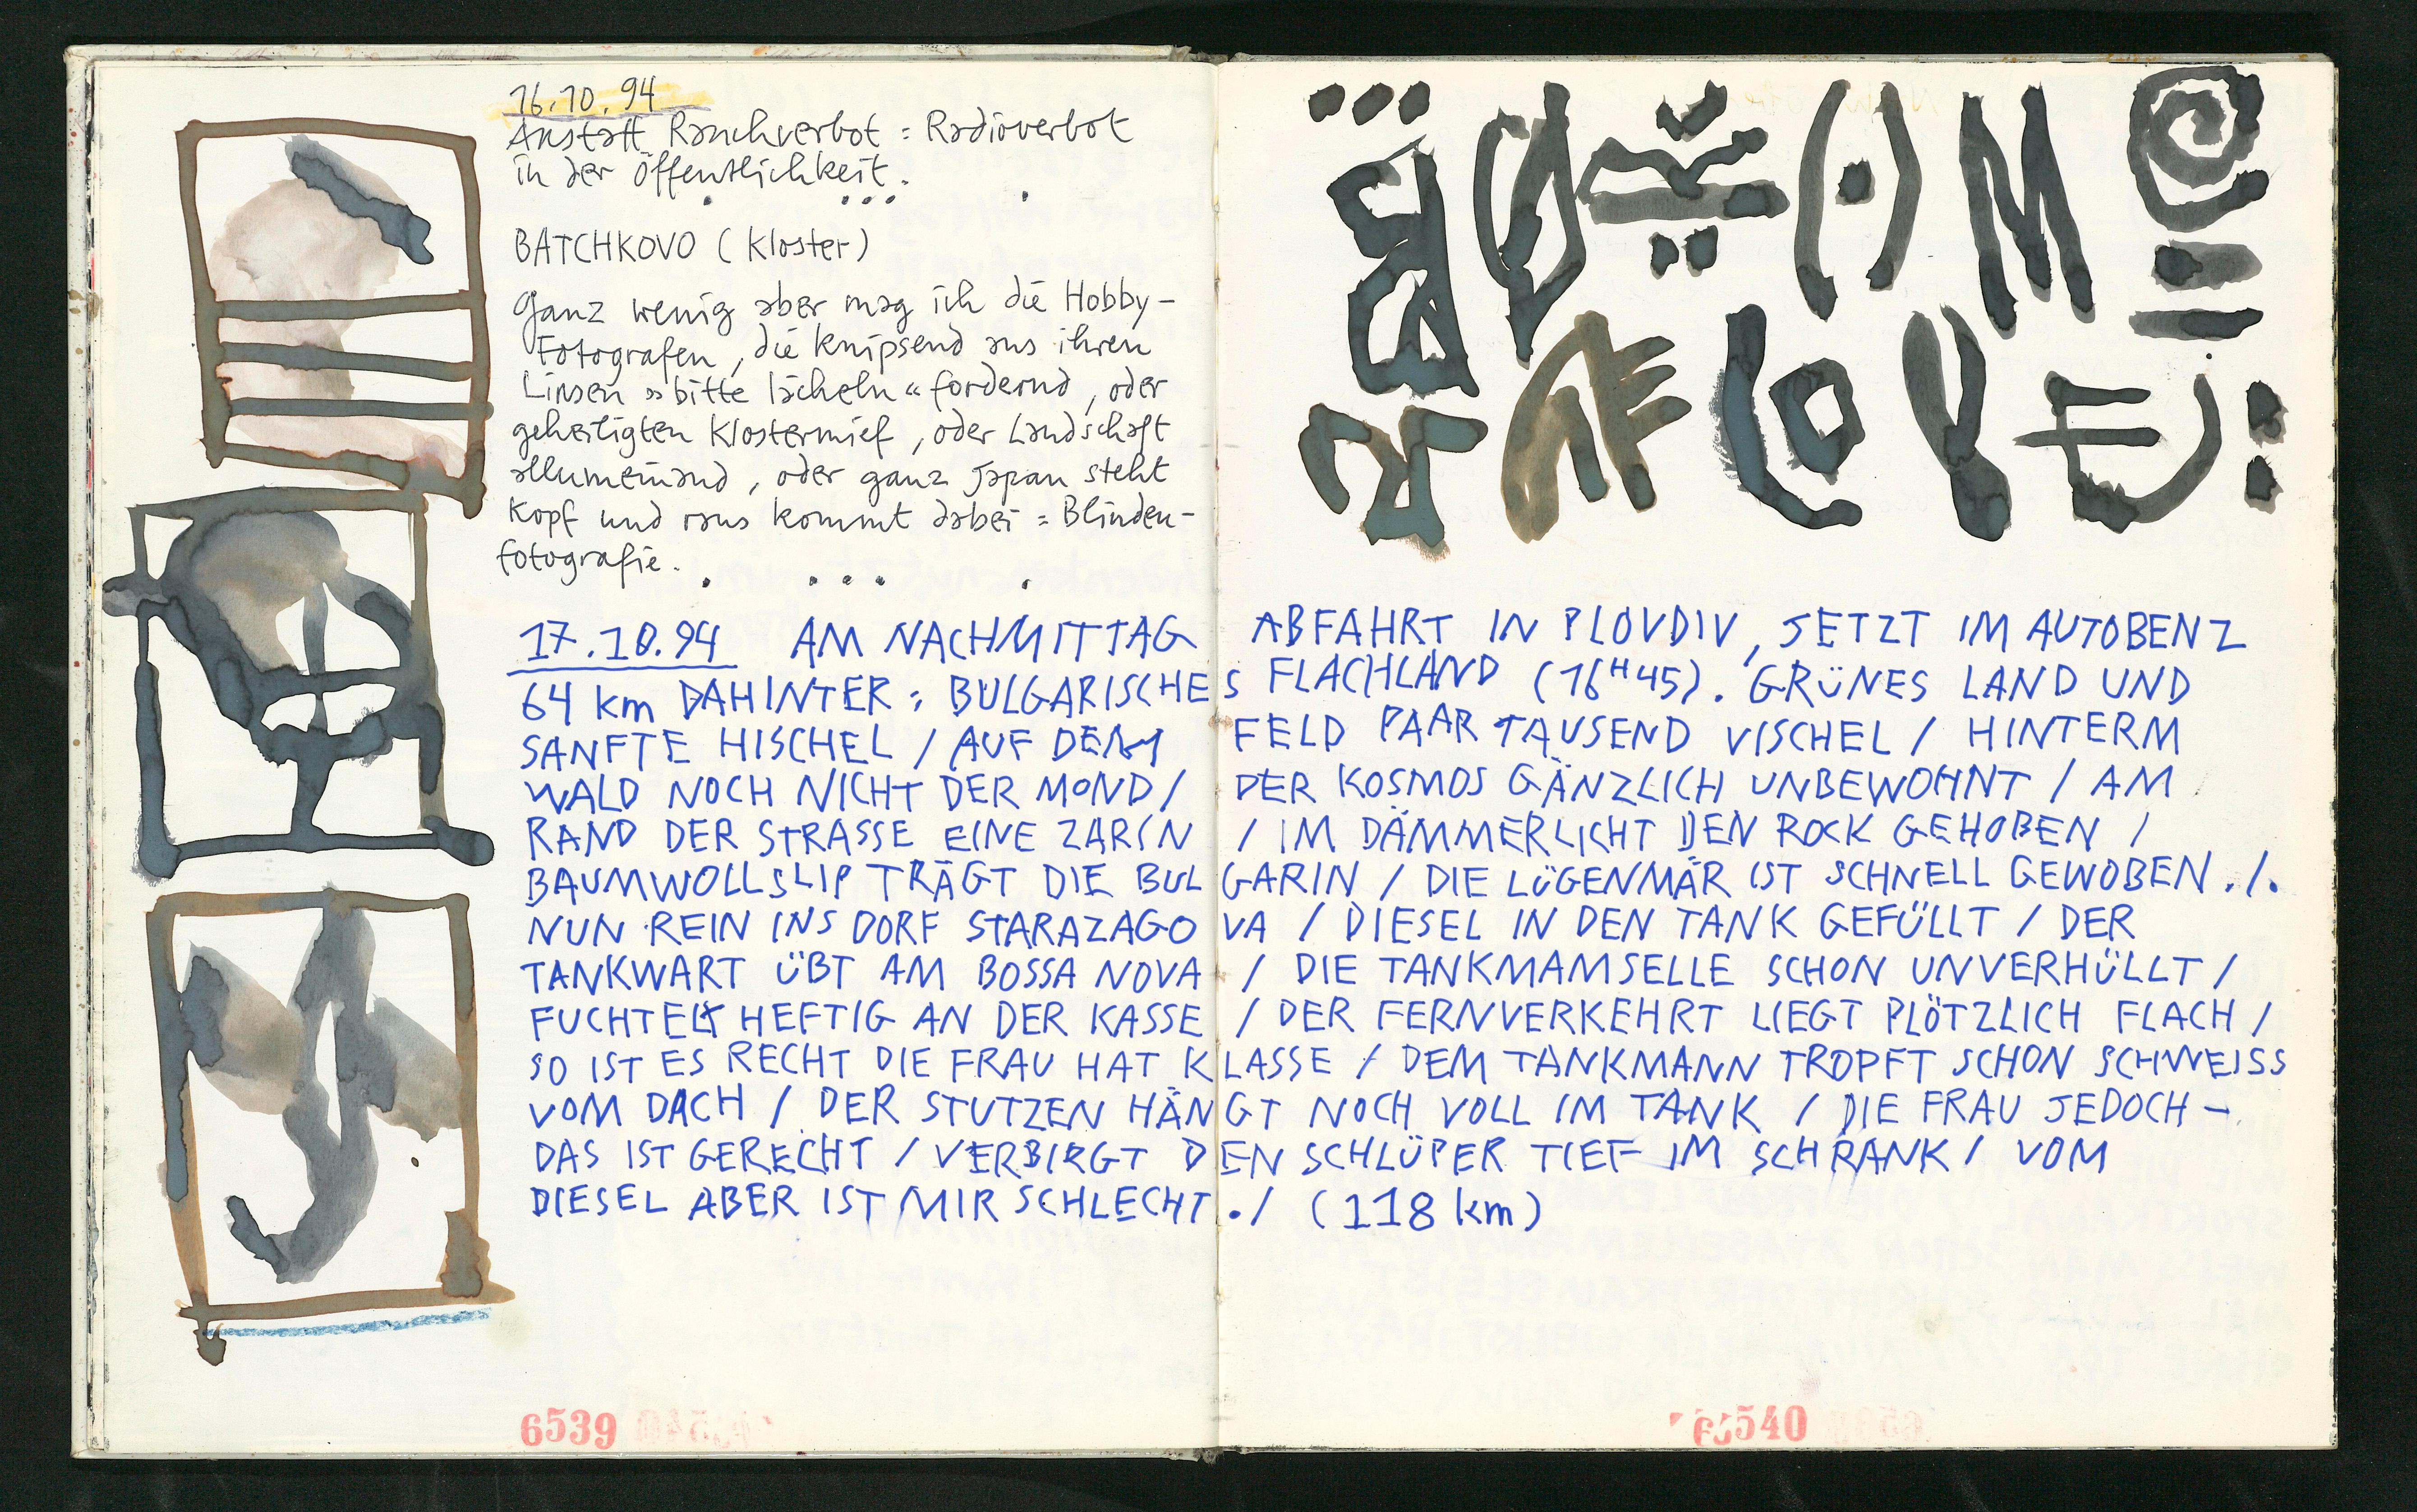 16.10.94
Anstatt Rauchverbot = Radioverbot
in der Öffentlichkeit.
BATCHKOVO (Kloster)
Ganz wenig aber mag ich die Hobby-
Fotografen, die knipsend aus ihren
Linsen »bitte lächeln« fordernd, oder
geheiligten Klostermief, oder Landschaft
allumeinand, oder ganz Japan steht
Kopf und raus kommt dabei = Blinden-
fotografie.
17.10.94 AM NACHMITTAG ABFAHRT IN PLOVDIV, JETZT IM AUTOBENZ
64 km DAHINTER: BULGARISCHES FLACHLAND (16H45). GRÜNES LAND UND
SANFTE HISCHEL / AUF DEM FELD PAAR TAUSEND VISCHEL / HINTERM
WALD NOCH NICHT DER MOND / DER KOSMOS GÄNZLICH UNBEWOHNT / AM
RAND DER STRASSE EINE ZARIN / IM DÄMMERLICHT DEN ROCK GEHOBEN /
BAUMWOLLSLIP TRÄGT DIE BULGARIN / DIE LÜGENMÄR IST SCHNELL GEWOBEN ./.
NUN REIN INS DORF STARAZAGOVA / DIESEL IN DEN TANK GEFÜLLT / DER
TANKWART ÜBT AM BOSSA NOVA / DIE TANKMAMSELLE SCHON UNVERHÜLLT /
FUCHTELT HEFTIG AN DER KASSE / DER FERNVERKEHRT LIEGT PLÖTZLICH FLACH /
SO IST ES RECHT DIE FRAU HAT KLASSE / DEM TANKMANN TROPFT SCHON SCHWEISS
VOM DACH / DER STUTZEN HÄNGT NOCH VOLL IM TANK / DIE FRAU JEDOCH -
DAS IST GERECHT / VERBIRGT DEN SCHLÜPER TIEF IM SCHRANK / VOM
DIESEL ABER IST MIR SCHLECHT ./ (118 km)
6539
6540